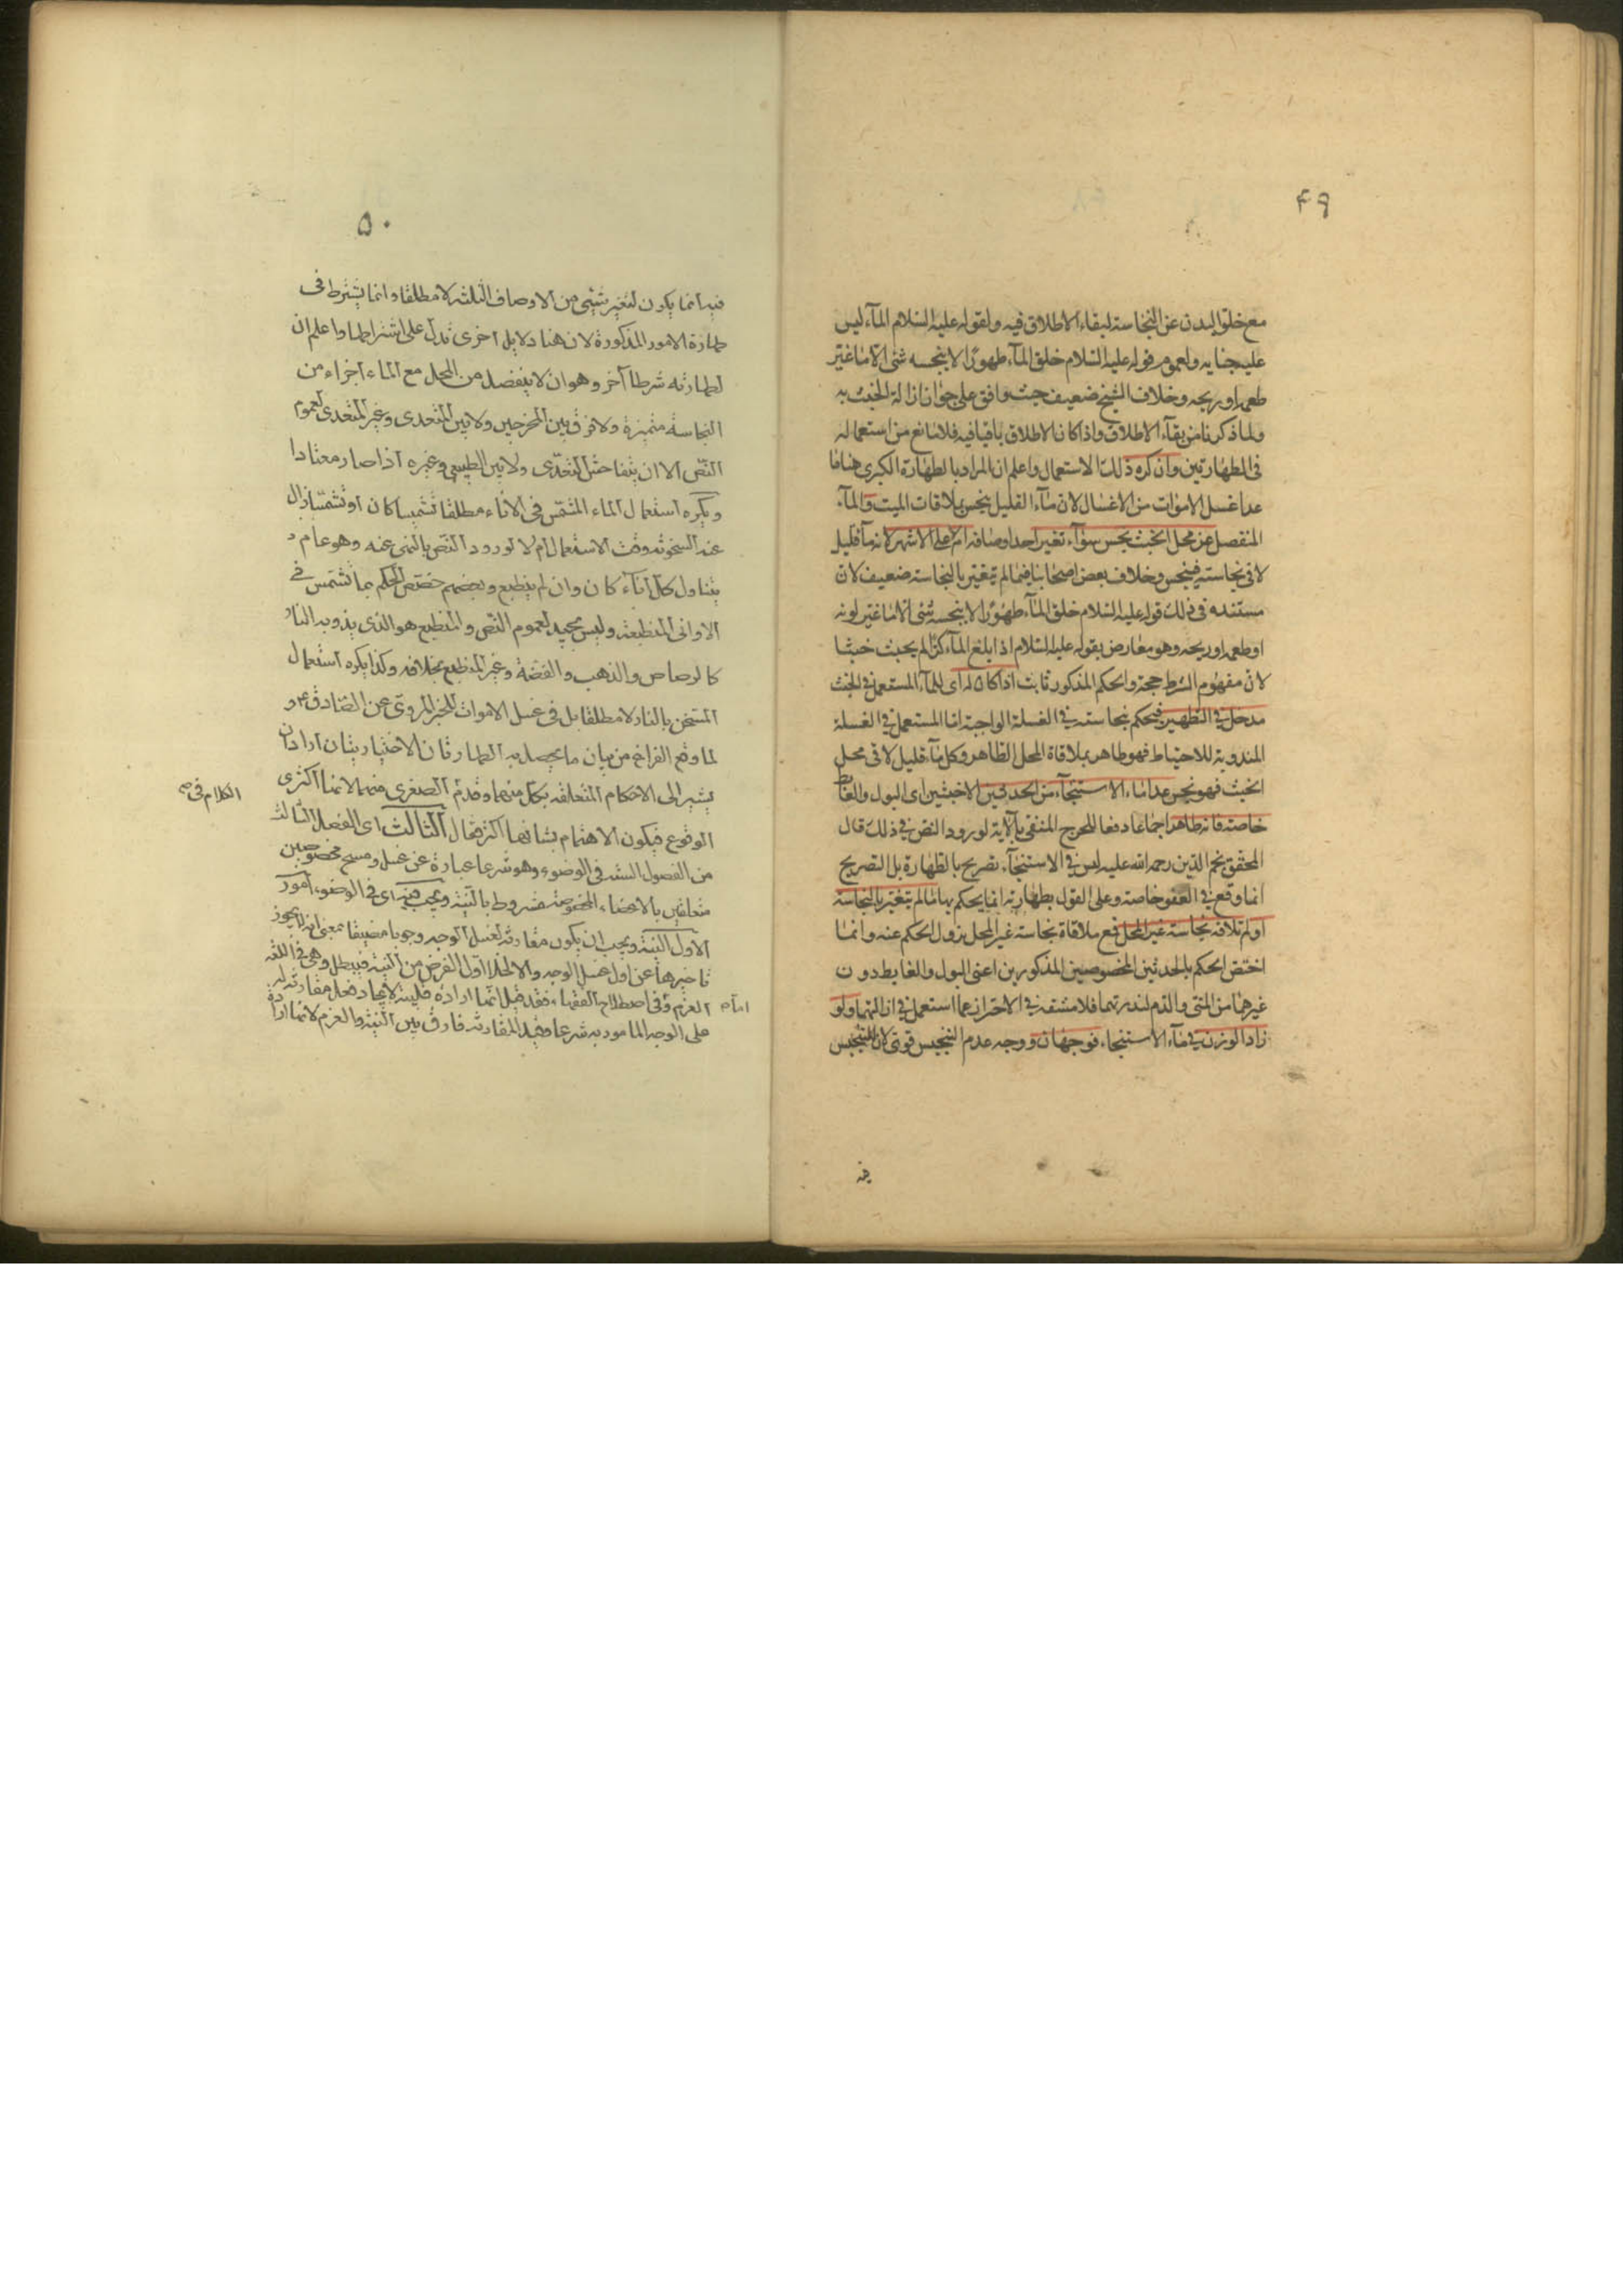 ۴۹
مع خلو البدن عن النجاسة لبقاء الاطلاق فيه ولقوله عليه السلام المآء ليس
عليه جنايه ولعموم قوله عليه السلام خلق المآء طهورًا لا ينجسه شئ الا ما غيّر
طعمه او ريحه وخلاف الشيخ ضعيف حيث وافق على جواز ازالة الخبث به
ولما ذكرنا من بقآء الاطلاق واذا كان الاطلاق باقيا فيه فلا مانع من استعماله
فى الطهارتين وان كره ذلك الاستعمال واعلم ان المراد بالطهارة الكبرى هنا ما
عدا غسل الاموات من الاغسال لان مآء القليل ينجس بملاقات الميت والمآء
المنفصل عن محل الخبث نجس سوآء تغير احد اوصافه ام لا على الاشهر لانه مآ قليل
لاقى نجاسته فينجس وخلاف بعض اصحابنا فيما لم يتغير بالنجاسة ضعيف لان
مستنده فى ذلك قوله عليه السلام خلق المآء طهورًا لا ينجسه شئ الا ما غير لونه
او طعمه او ريحه وهو معارض بقوله عليه السلام اذا بلغ المآء كرًّا لم يحبث خبثا
لان مفهوم الشرط حجة والحكم المذكور ثابت اذا كان له اى للمآء المستعمل فى الخبث
مدخل فى التطهير فيحكم بنجاسته فى الغسلة الواجبة اما المستعمل فى الغسلة
المندوبة للاحتياط فهو طاهر بملاقاة المحل الطاهر وكل مآء قليل لاقى محل
الخبث فهو نجس عدا مآء الاستنجآء من الحدثين الاخبثين اى البول والغايط
خاصة فانه طاهر اجماعا دفعا للحرج المنفى بالآية لورود النص فى ذلك قال
المحقق نجم الدين رحمه الله عليه ليس فى الاستنجآء تصريح بالطهارة بل التصريح
انما وقع فى العفو خاصة وعلى القول بطهارته انما يحكم بها ما لم يتغير بالنجاسة
او لم تلاقه نجاسة غير المحل فمع ملاقاة نجاسة غير المحل يزول الحكم عنه وانما
اختص الحكم بالحدثين المخصوصين المذكورين اعنى البول والغايط دون
غيرهما من المنى والدم لندرتهما فلا مشقة فى الاحتراز عما استعمل فى ازالتهما ولو
زاد الوزن فى مآء الاستنجاء فوجهان ووجه عدم التنجيس قوى لان التنجيس
فيه
۵۰
فيه انما يكون لتغير شئ من الاوصاف الثلثه لا مطلقا وانما يشترط فى
طهارة الامور المذكورة لان هنا دلايل اخرى تدل على اشتراطها واعلم ان
لطهارته شرطا آخر وهو ان لا ينفصل من المحل مع الماء اجزاء من
النجاسة متميزة ولا فرق بين المخرجين ولا بين المتعدى وغير المتعدى لعموم
النص الا ان يتفاحش التعدى ولا بين الطبيعى وغيره اذا صار معتادا
ويكره استعمال الماء المشمس فى الاناء مطلقا تشميسا كان او تشمسا زال
عنه السخونة وقت الاستعمال ام لا لورود النص بالنهى عنه وهو عام
يتناول كل اناء كان وان لم ينطبع وبعضهم خصص الحكم بما تشمس فى
الاوانى المنطبعة وليس بجيد لعموم النص والمنطبع هو الذى يذوبه النار
كالرصاص والذهب والفضة وغير المنطبع بخلافه وكذا يكره استعمال
المسخن بالنار لا مطلقا بل فى غسل الاموات للخبر المروى عن الصادق ع و
لما وقع الفراغ من بيان ما يحصل به الطهارتان الاختياريتان اراد ان
يشير الى الاحكام المتعلقة بكل منهما وقدم الصغرى منهما لانها اكثرى
الكلام فى
الوقوع فيكون الاهتمام بشانها اكثر فقال الثالث اى الفصل الثالث
من الفصول الستة فى الوضوء وهو شرعا عبارة عن غسل ومسح مخصوصين
متعلقين بالاعضاء المخصوصة مشروط بالنية ويجب فيه اى فى الوضوء امور
الاول النية ويجب ان يكون مقارنة لغسل الوجه وجوبا مضيقا بمعنى انه لا يجوز
تاخيرها عن اول غسل الوجه والا لخلا اول الفرض من النية فيبطل وهى فى اللغة
العزم وفى اصطلاح الفقهاء فقد قيل انها ارادة قلبية لايجاد فعل مقارنة له
على الوجه المامور به شرعا وقيد المقارنة فارق بين النية والعزم لانها ارادة